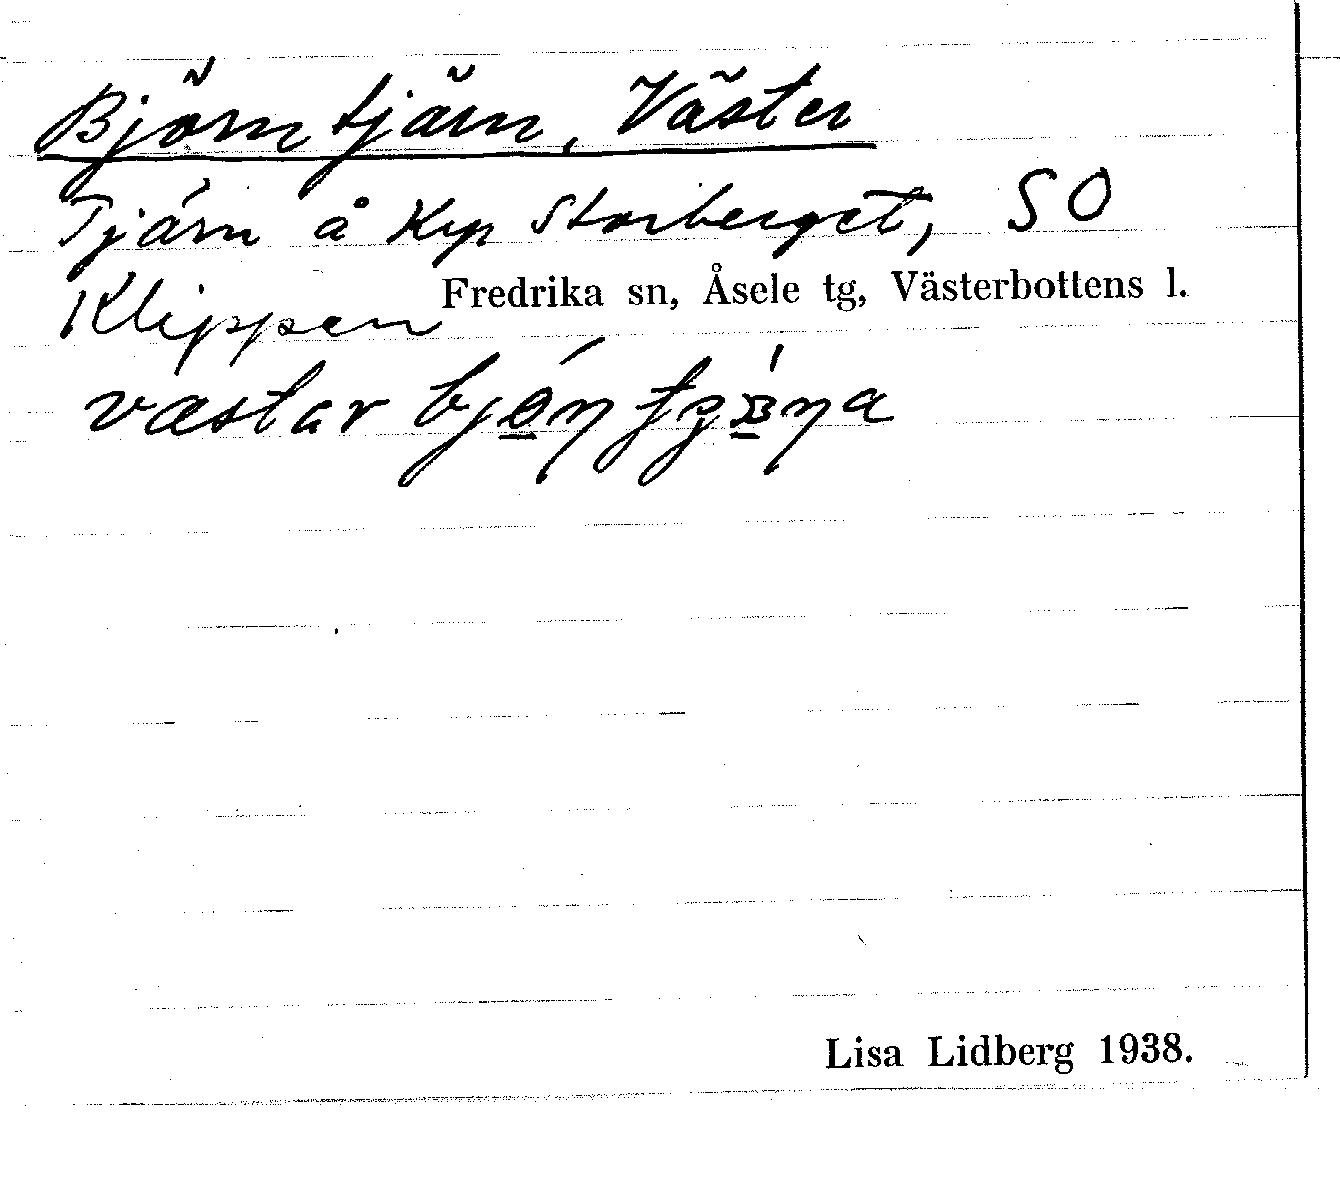 Björntjärn, Väster
Tjärn å Krp Storberget, SO
Klippen
Fredrika sn, Åsele tg, Västerbottens l.
Lisa Lidberg 1938.